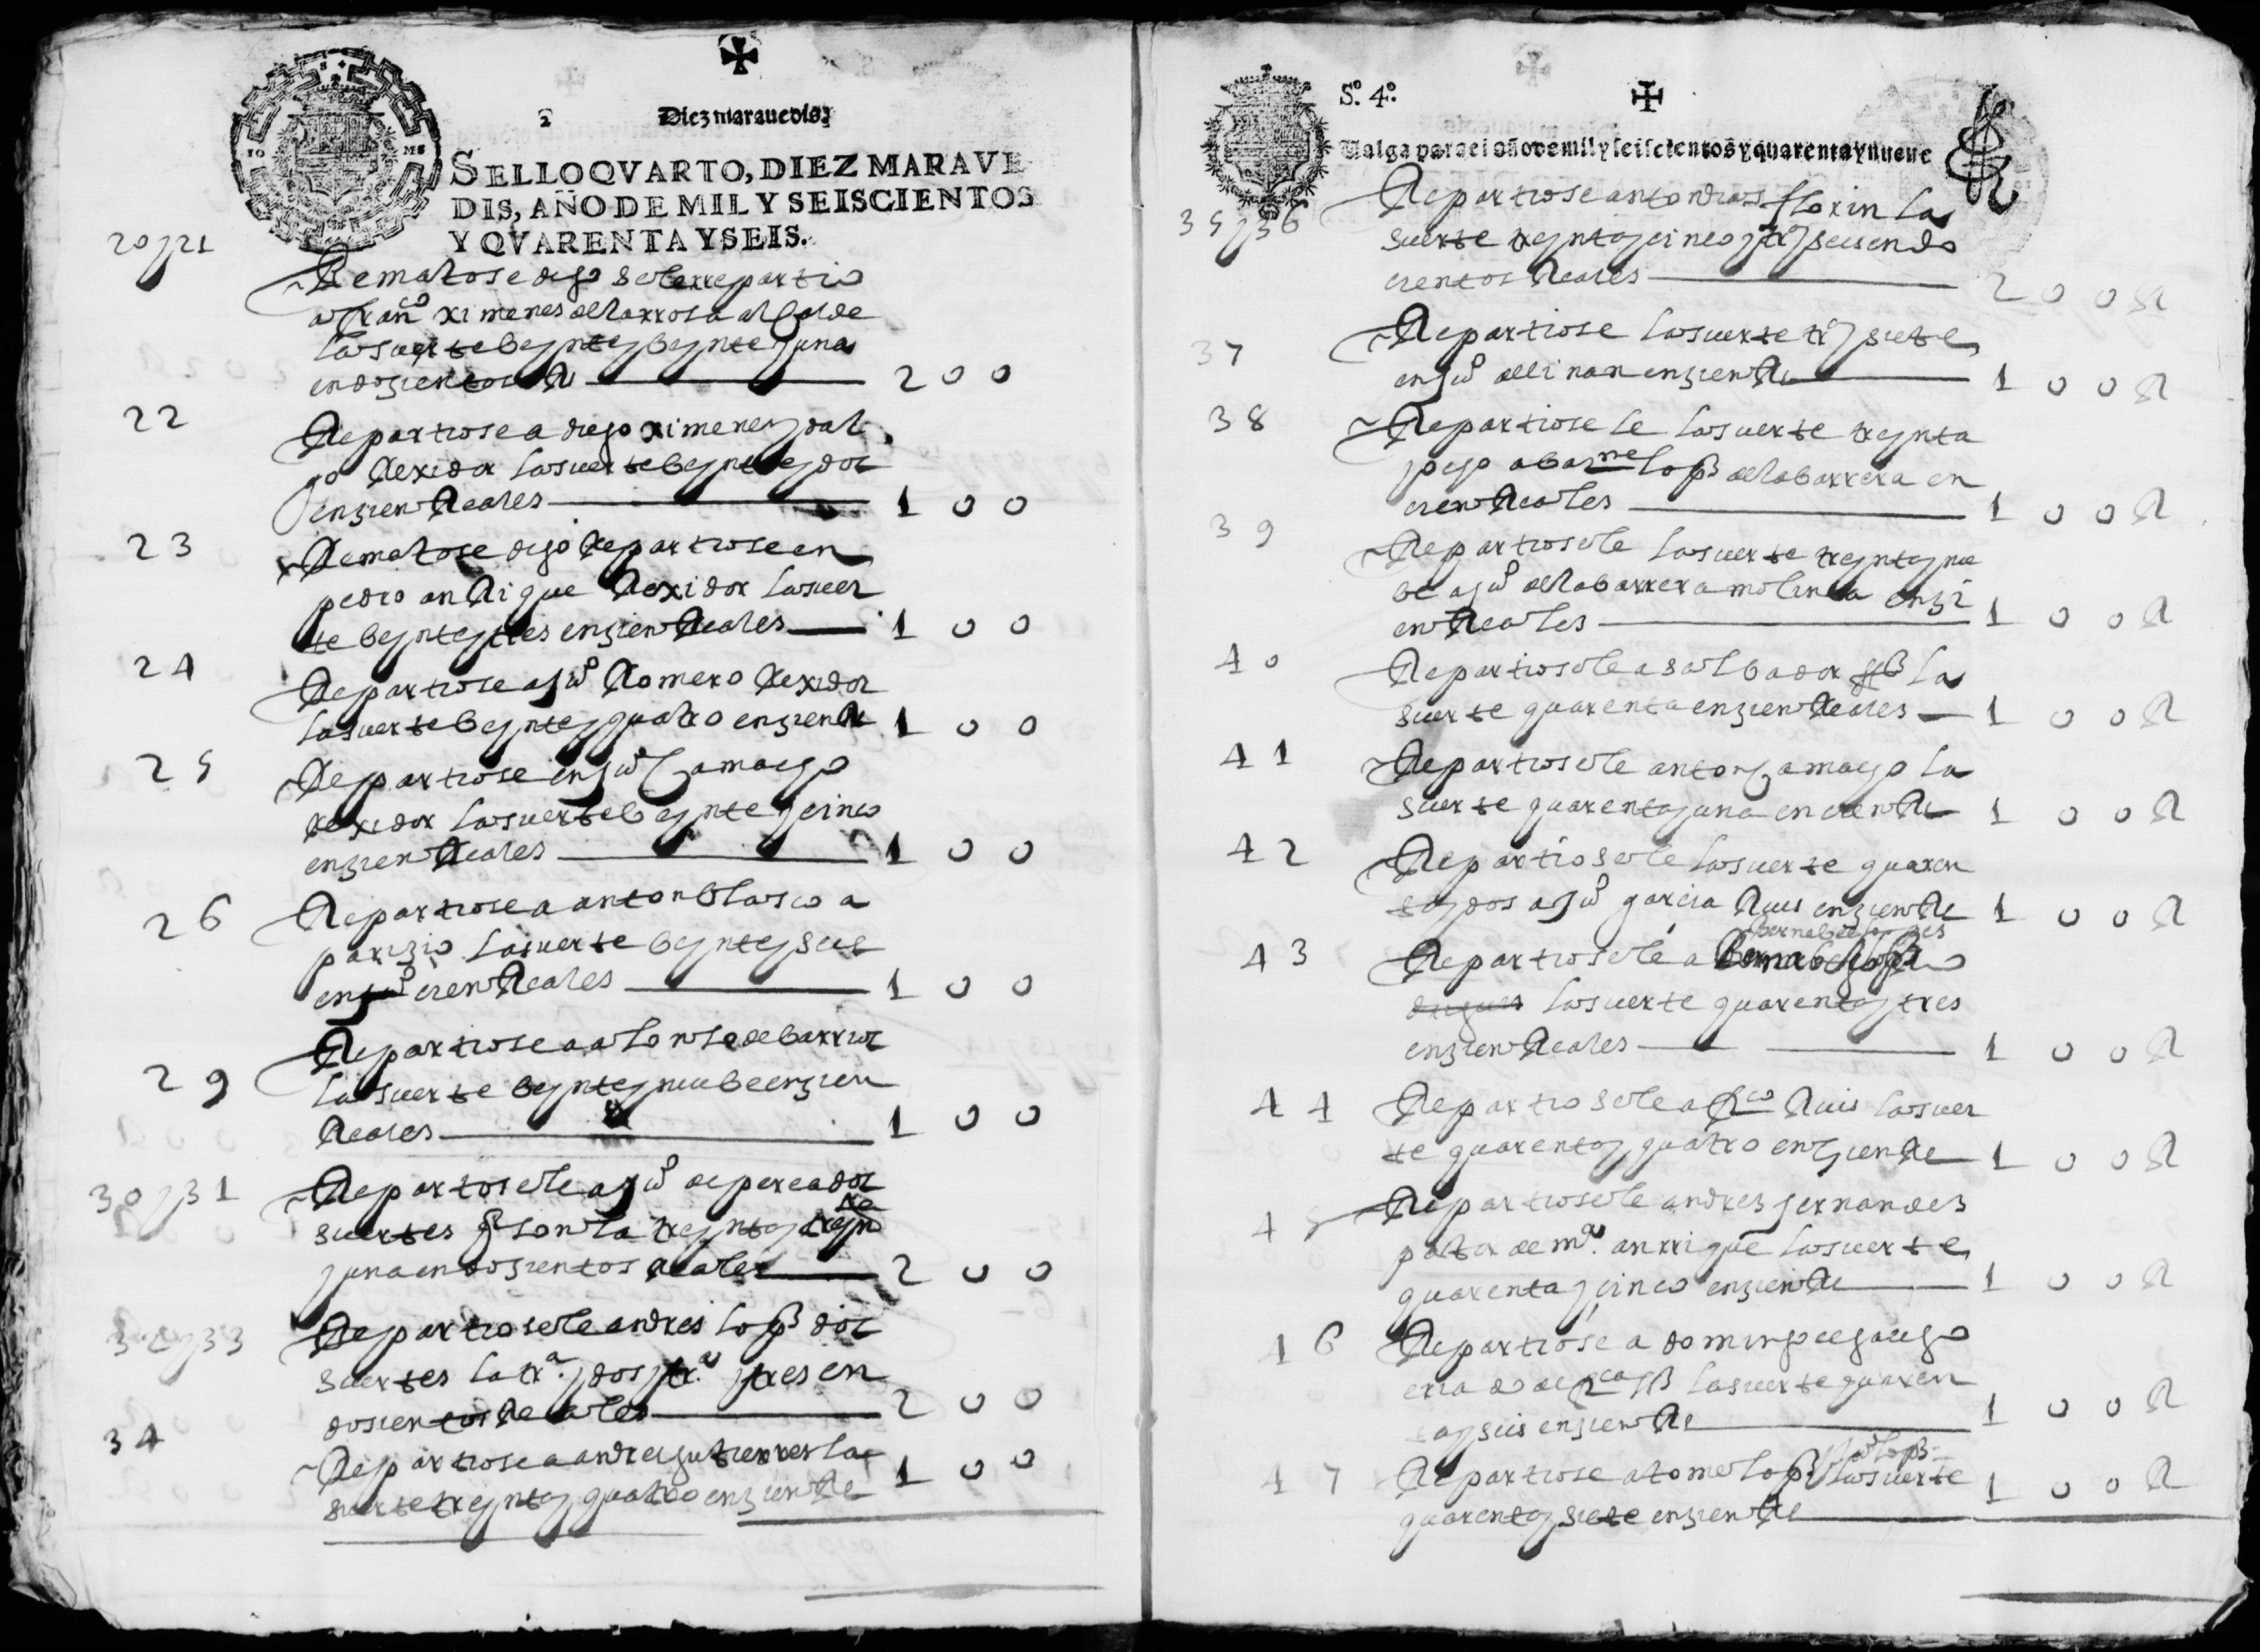 Diez maravedis
SELLO QVARTO, DIEZ MARAVE
DIS, AÑO DE MIL Y SEISCIENTOS
Y QVARENTA Y SEIS.
20 y 21
Rematose digo se le rrepartio
a fran^co ximenes de la rrosa alcalde
la suerte beynte y beynte y una
en dozientos R 200
22
Repartiose a diego ximenez
Rexidor la suerte beynte y dos
en zien Reales 100
23
Rematose digo Repartiose en
pedro anRique Rexidor la suer
te beynte y tres en zien Reales 100
24
Repartiose a ju^o Romero Rexidor
la suerte beynte y quatro en zien R 100
25
Repartiose en ju^o gamaeyo
rexidor la suerte beynte y cinco
en zien Reales 100
26
Repartiose a anton blasco a
parizio la suerte beynte y seis
en cien Reales 100
29
Repartiose a alonso de barrios
la suerte beynte y nuebe en zien
Reales 100
30 y 31
Repartosele a ju^o de perea dos
suertes q son la treynta y trejn
ta
y una en dozientos Reales 200
32 y 33
Repartiosele andres lopz dos
suertes la tr^a y dos y tr^a y tres en
dosientos Reales 200
34
Repartiose a andres gutierres la
suerte treynta y quatro en zien Rs 100
S^o. 4^o.
Valga para el año de mil y seiscientos y quarenta y nueve
35 y 36
Repartiose anton dias florin la
suerte treynta y cinco y tr^a y seis en do
cientos Reales 200 R
37
Repartiose la suerte tr^a y siete
en ju^o de linan en zien Rs 100 R
38
Repartiosele la suerte treynta
y ocho a bar^me lopz de la barrera en
cien Reales 100 R
39
Repartiosele la suerte treynta y nue
be a ju^o de la barrera molina en zi
en Reales 100 R
40
Repartiosele a salbador la
suerte quarenta en zien Reales 100 R
41
Repartiosele anton gamaeyo la
suerte quarenta y una en cien Rs 100 R
42
Repartiosele la suerte quaren
ta y dos a ju^o garcia Ruis en zien Rs 100 R
bernabe lopes
43
Repartiosele a
la suerte quarenta y tres
en zien Reales 100 R
44
Repartiosele a fr^co Ruis la suer
te quarenta y quatro en zien Rs 100 R
45
Repartiosele andres fernandes
de m^a anrrique la suerte
quarenta y cinco en zien Rs 100 R
46
Repartiose a domingo
criado de la suerte quaren
ta y seis en zien Rs 100 R
ju^o lopz
47
Repartiose a tome lopz la suerte 100 R
quarenta y siete en zien Rs